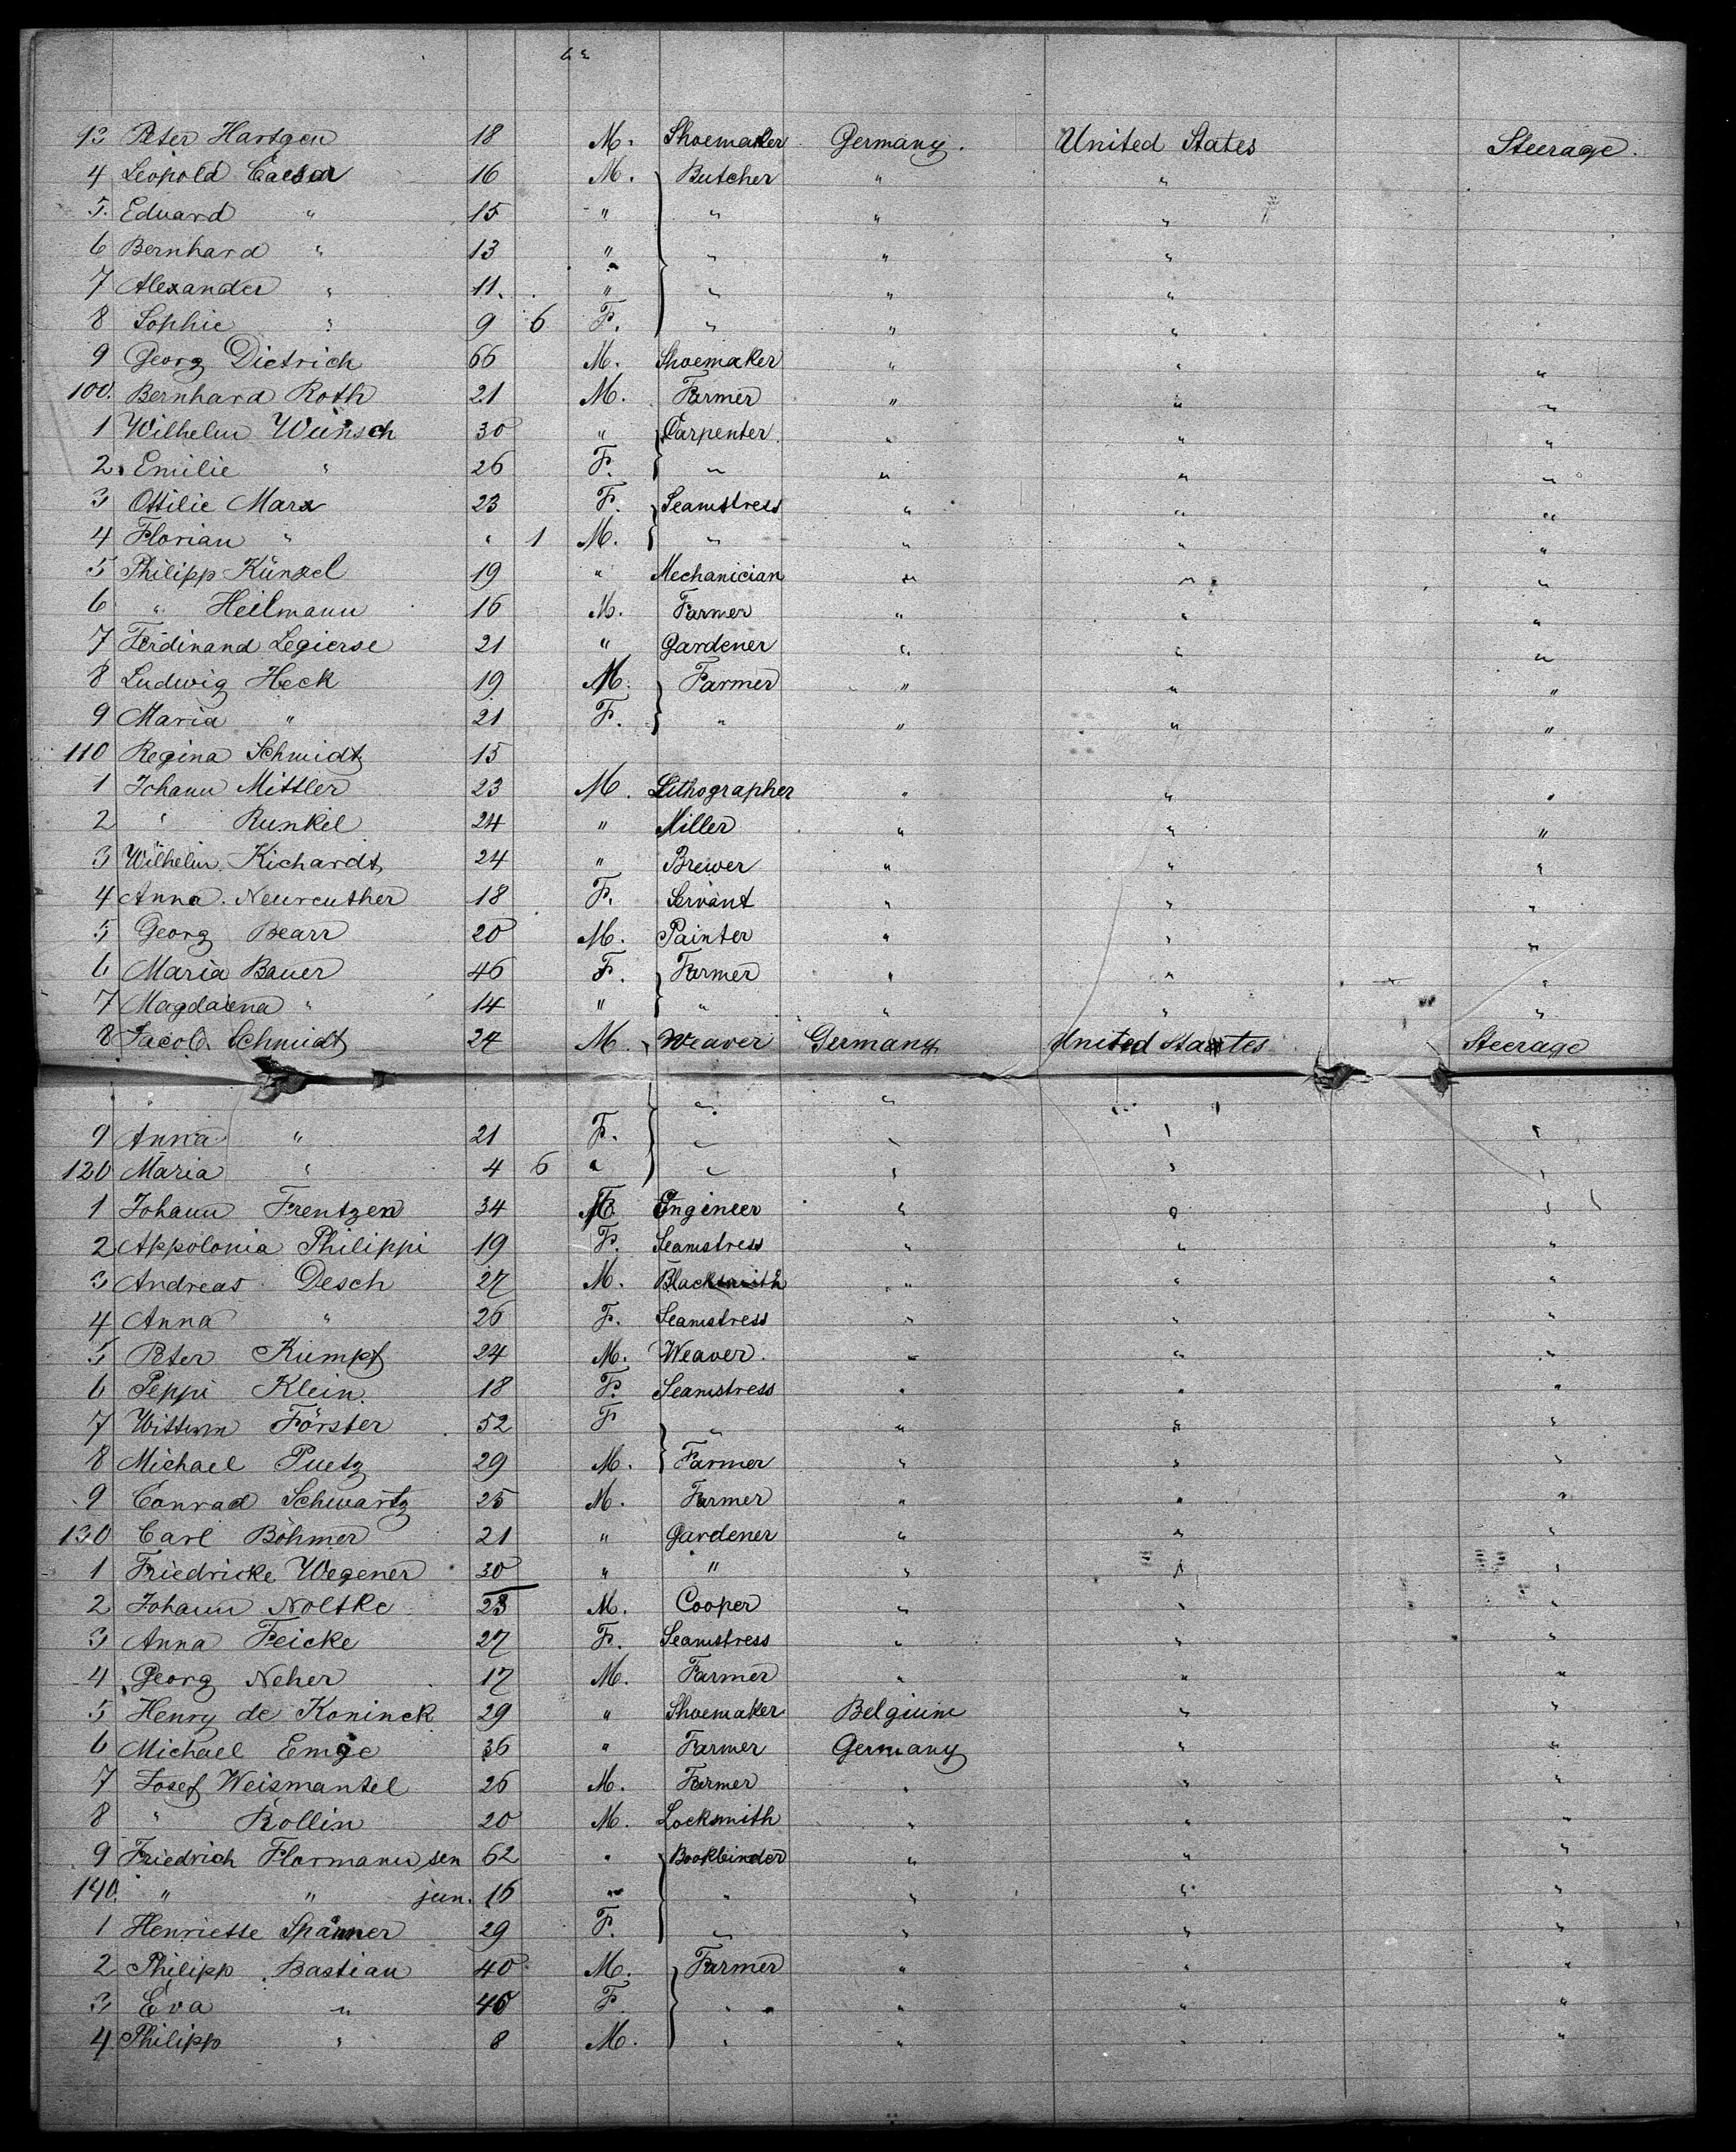 93 Peter Hartgen 18 M. Shoemaker Germany. United States Steerage.
4 Leopold Caesar 16 M. Butcher " "
5. Eduard " 15 " " " "
6 Bernhard " 13 " " " "
7 Alexander " 11. " " " "
8 Sophie " 9 6 F. " " "
9 Georg Dietrich 66 M. Shoemaker " " "
100. Bernhard Roth 21 M. Farmer " " "
1 Wilhelm Wünsch 30 " Carpenter. " " "
2. Emilie " 26 F. " " " "
3 Ottilie Marx 23 F. Seamstress " " "
4 Florian " " 1 M. " " " "
5 Philipp Künzel 19 " Mechanician " " "
6 " Heilmann 16 M. Farmer " " "
7 Ferdinand Legierse 21 " Gardener " " "
8 Ludwig Heck 19 M. Farmer " " "
9 Maria " 21 F. " " " "
110 Regina Schmidt 15
1 Johann Mittler 23 M. Lithographer " " "
2 " Runkel 24 " Miller " " "
3 Wilhelm Kichardt 24 " Brewer " " "
4 Anna Neureuther 18 F. Servant " " "
5 Georg Bearr 20 M. Painter " " "
6 Maria Bauer 46 F. Farmer " " "
7 Magdalena " 14 " " " " "
8 Jacob Schmidt 24 M. Weaver Germany United States Steerage
" "
9 Anna " 21 F. " " " "
120 Maria " 4 6 " " " " "
1 Johann Frentzen 34 M. Engineer " " "
2 Appolonia Philippi 19 F. Seamstress " " "
3 Andreas Desch 27 M. Blacksmith " " "
4 Anna " 26 F. Seamstress " " "
5 Peter Kumpf 24 M. Weaver. " " "
6 Peppi Klein. 18 F. Seamstress " " "
7 Förster 52 F " " " "
8 Michael Puetz 29 M. Farmer " " "
9 Conrad Schwartz 25 M. Farmer " " "
130 Carl Böhmer 21 " Gardener " " "
1 Friedricke Wegener 30 " " " " "
2 Johann Noltke 28 M. Cooper " " "
3 Anna Feicke 27 F. Seamstress " " "
4 Georg Neher 17 M. Farmer " " "
5 Henry de Koninck 29 " Shoemaker Belgium " "
6 Michael Emge 36 " Farmer Germany " "
7 Josef Weismantel 26 M. Farmer " " "
8 " Rollin 20 M. Locksmith " " "
9 Friedrich Flormann sen 62 " Bookbinder " " "
140. " " jun. 16 " " " " "
1 Henriette Spanner 29 F. " " " "
2 Philipp Bastian 40 M. Farmer " " "
3 Eva " 40 F. " " " "
4 Philipp " 8 M. " " " "